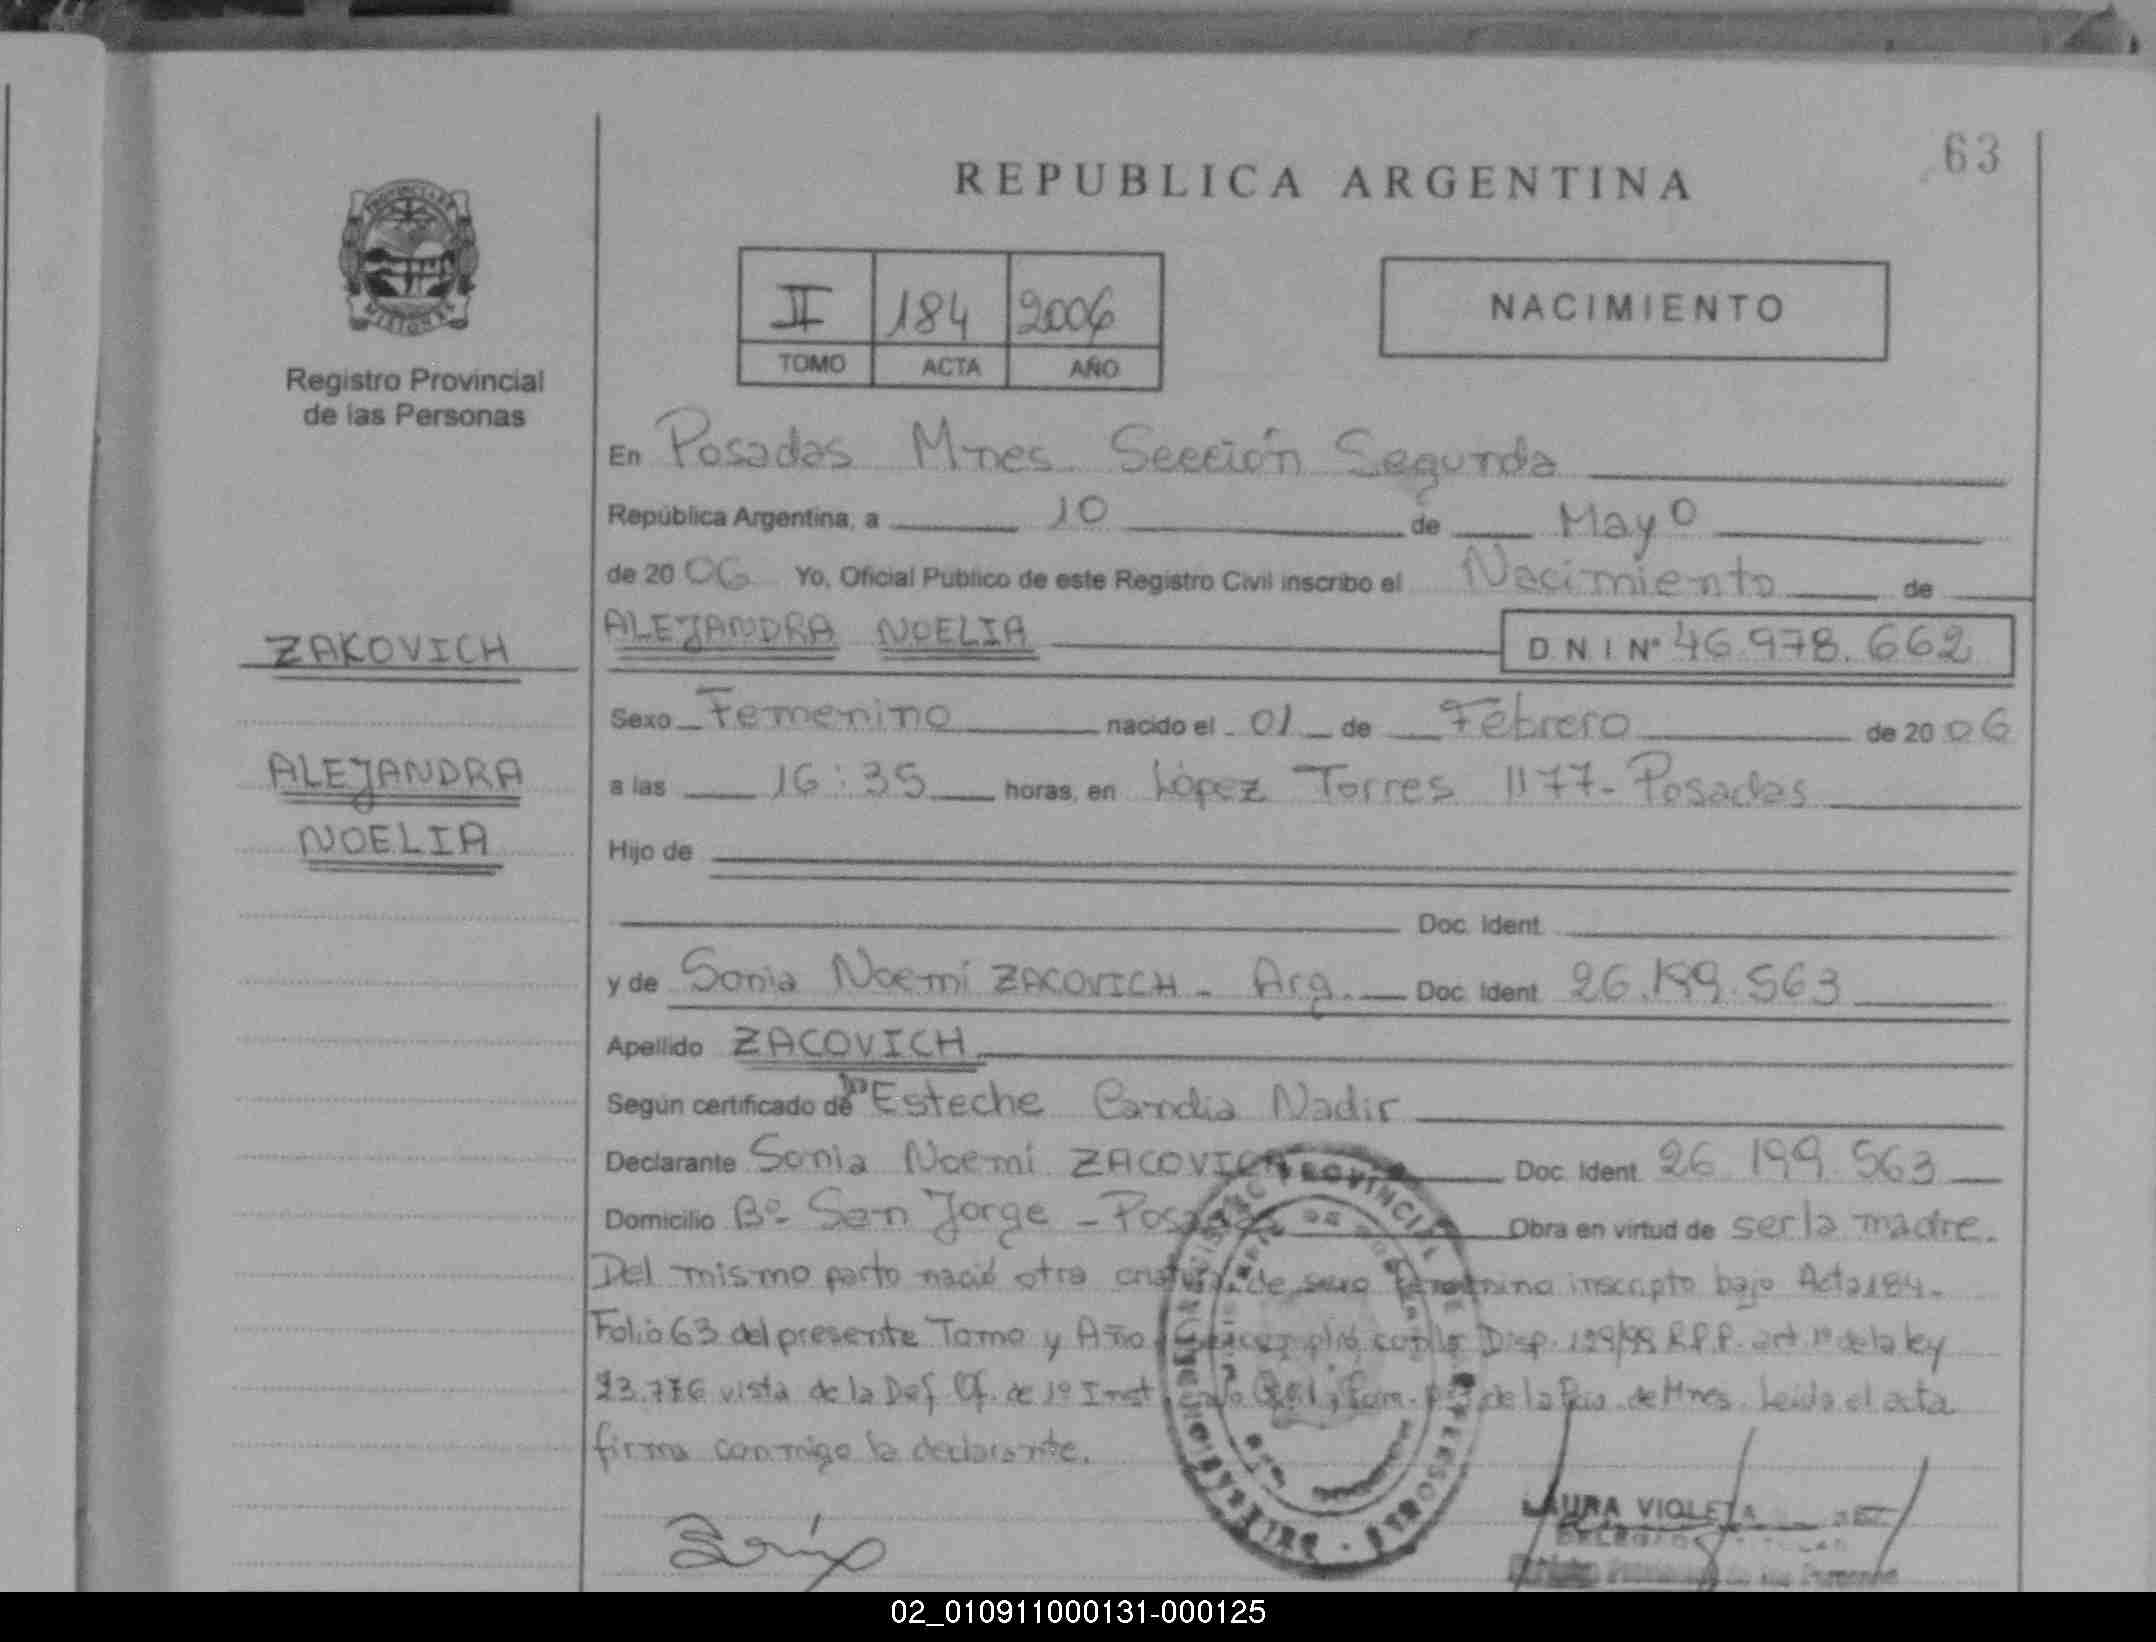 63
REPUBLICA ARGENTINA
PROVINCIA DE
MISIONES
II 184 2006
TOMO ACTA AÑO
NACIMIENTO
Registro Provincial
de las Personas
En Posadas Mnes. Sección Segunda
República Argentina, a 10 de Mayo
de 2006 Yo, Oficial Publico de este Registro Civil inscribo el Nacimiento de
ZAKOVICH
ALEJANDRA NOELIA D.N.I Nº 46.978.662
Sexo Femenino nacido el 01 de Febrero de 2006
ALEJANDRA
NOELIA
a las 16:35 horas, en López Torres 1177- Posadas
Hijo de
Doc. Ident.
y de Sonia Noemí ZACOVICH - Arg. Doc. Ident. 26.199.563
Apellido ZACOVICH
Según certificado de Esteche Candia Nadir
Declarante Sonia Noemí ZACOVICH Doc. Ident. 26.199.563
Domicilio Bº San Jorge - Posadas Obra en virtud de ser la madre.
Del mismo parto nació otra criatura de sexo femenino inscripto bajo Acta 184-
Folio 63 del presente Tomo y Año Disp. 199/99 R.P.P. art. 1º de la ley
23.776 vista de la Def. Of. de 1º Inst de la Pcia. de Mnes. Leída el acta
firma conmigo la declarante.
REGISTRO PROVINCIAL DE LAS PERSONAS
LAURA VIOLETA
02_010911000131-000125